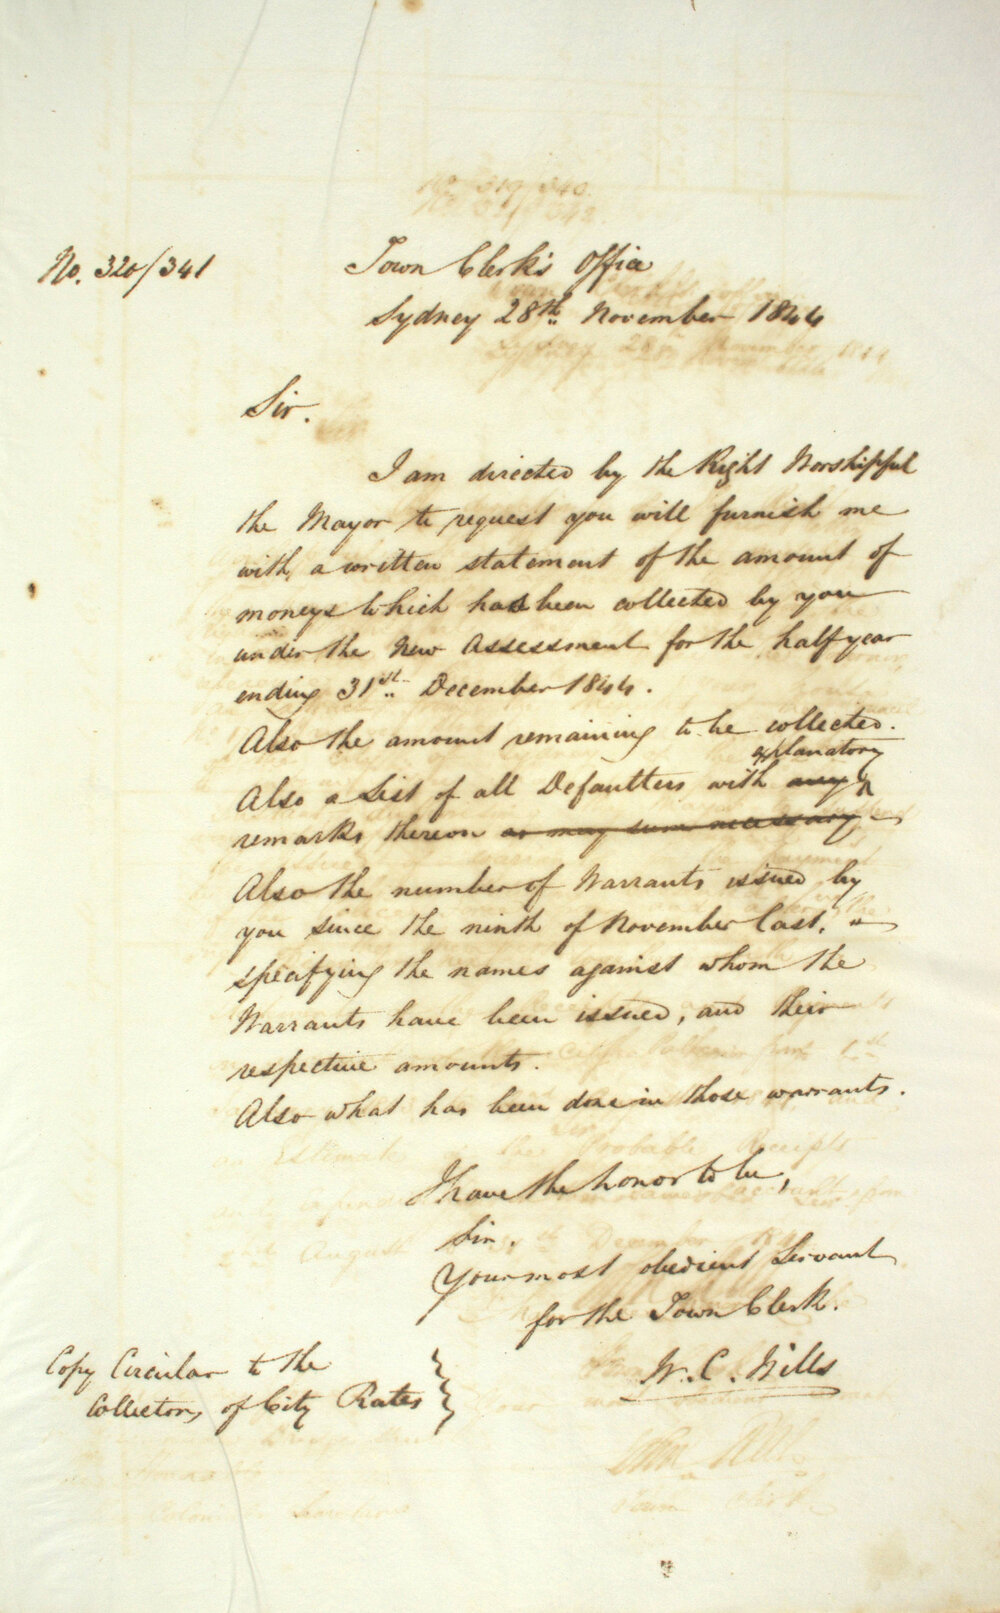 No. 320/341
Town Clerk's Office
Sydney 28th November 1844
Sir.
I am directed by the Right Worshipful
the Mayor to request you will furnish me
with a written statement of the amount of
moneys which has been collected by you
under the New Assessment for the half year
ending 31st December 1844.
Also the amount remaining to be collected.
explanatory
Also a List of all Defaulters with any
remarks thereon as may seem necessary
Also the number of Warrants issued by
you since the ninth of November last,
specifying the names against whom the
Warrants have been issued, and their
respective amounts.
Also what has been done in those warrants.
I have the honor to be,
Sir.
Your most obedient Servant
for the Town Clerk.
W. C. Wills
Copy Circular to the
Collectors of City Rates